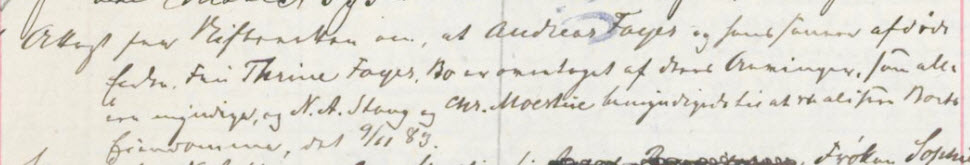 Attest fra Skifteretten om, at Andreas Fayes og hans senere afdøde
Enke, Fru Thrine Fayes, Bo er overtaget af deres Arvinger, som alle
ere myndige, og N. A. Stang og Chr. Moestue bemyndigede til at realisere Boets
Eiendomme, dat 9/11 83.
Frøken Sophie